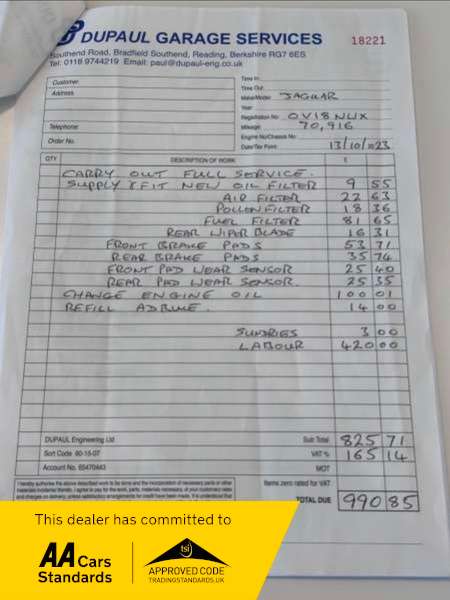 DUPAUL GARAGE SERVICES
18221
Southend Road, Bradfield Southend, Reading, Berkshire RG7 6ES
Tel: 0118 9744219 Email: paul@dupaul-eng.co.uk
Customer
Address
Telephone
Order No.
Time In:
Time Out:
Make/Model JAGUAR
Year
Registration No: OV18 NUX
Mileage: 70,916
Engine No/Chassis No:
Date/Tax Point: 13/10/2023
QTY DESCRIPTION OF WORK £
CARRY OUT FULL SERVICE.
SUPPLY & FIT NEW OIL FILTER 9 55
AIR FILTER 22 63
POLLEN FILTER 18 36
FUEL FILTER 81 65
REAR WIPER BLADE 16 31
FRONT BRAKE PADS 53 71
REAR BRAKE PADS 35 74
FRONT PAD WEAR SENSOR 25 40
REAR PAD WEAR SENSOR. 25 35
CHANGE ENGINE OIL 100 01
REFILL ADBLUE. 14 00
SUNDRIES 3 00
LABOUR 420 00
DUPAUL Engineering Ltd
Sort Code 60-15-07
Account No. 65470443
Sub Total 825 71
VAT % 165 14
MOT
Items zero rated for VAT
TOTAL DUE 990 85
This dealer has committed to
AA Cars
Standards
tsi
APPROVED CODE
TRADINGSTANDARDS.UK